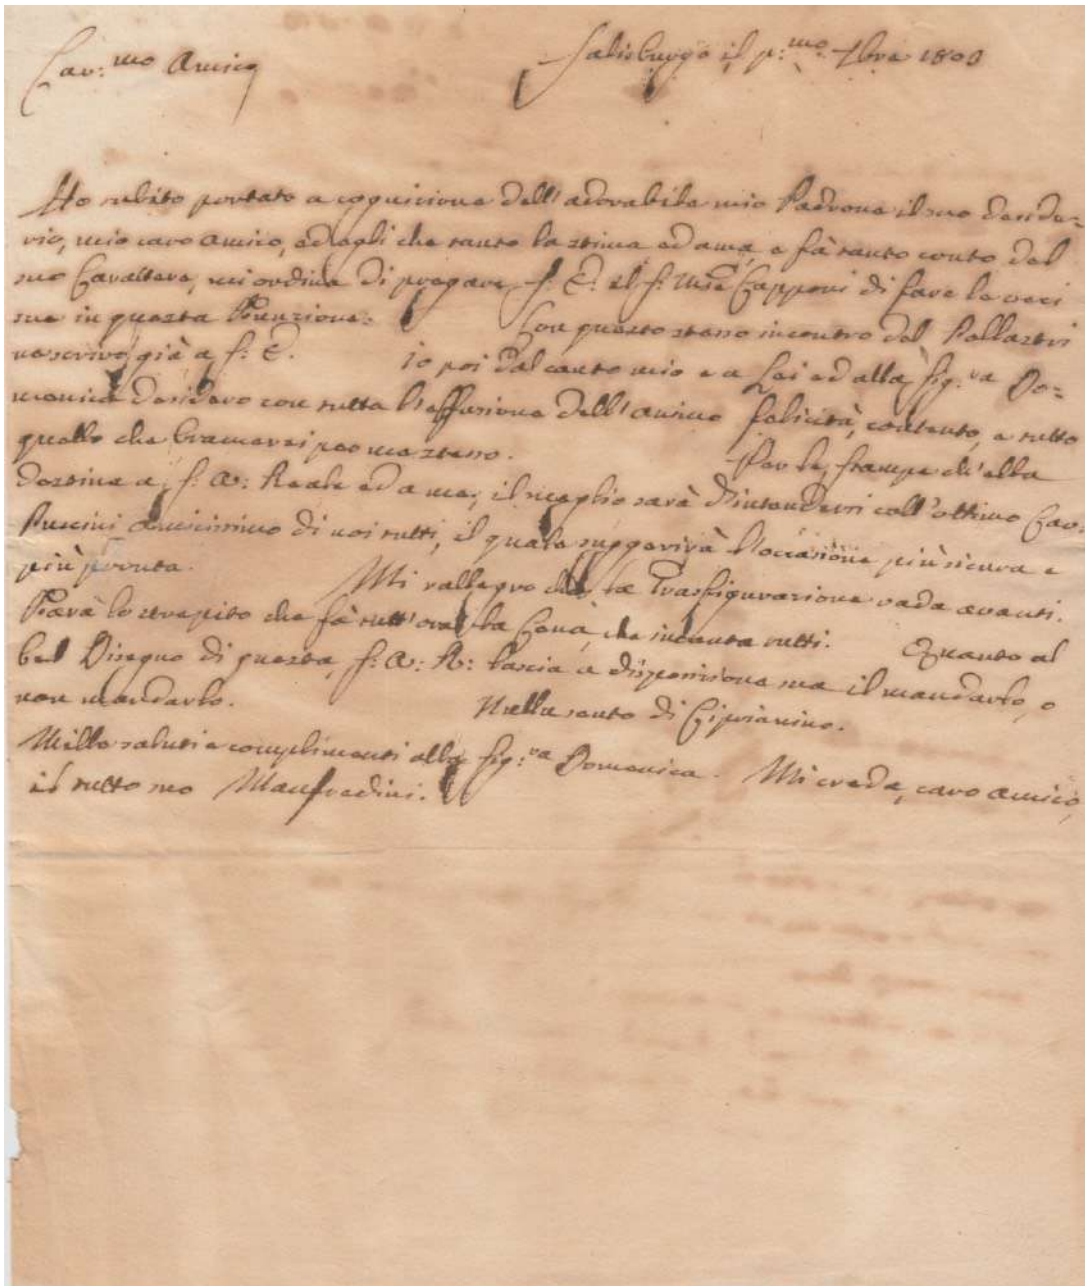 Car.mo Amico Salisburgo il p.mo 7bre 1800
Ho subito portato a cognizione dell'adorabile mio Padrone il suo deside-
rio, mio caro Amico, ed egli che tanto la stima ed ama, e fà tanto conto del
suo Carattere, mi ordina di pregare S: E: il S: Capponi di fare le veci
sue in questa Funzione. Con questo stesso incontro del Pollastri
ne scrivo già a S: E. Io poi dal canto mio e a Lei ed alla Sig:ra Do=
menica desidero con tutta l'effusione dell'animo felicità, contento, e tutto
quello che bramerei per me stesso. Per le Stampe ch'ella
destina a S: A: Reale ed a me, il meglio sarà d'intendersi coll'ottimo Cav:
Puccini amicissimo di noi tutti, il quale suggerirà l'occasione più sicura e
più pronta. Mi rallegro che la Trasfigurazione vada avanti.
Farà lo strepito che fà tutt'ora la Cena, che incanta tutti. Quanto al
bel Disegno di questa, S: A: R: lascia a disposizione sua il mandarlo, o
non mandarlo. Nulla sento di Ciprianino.
Mille saluti e complimenti alla Sig:ra Domenica. Mi creda, caro Amico,
il tutto suo Manfredini.